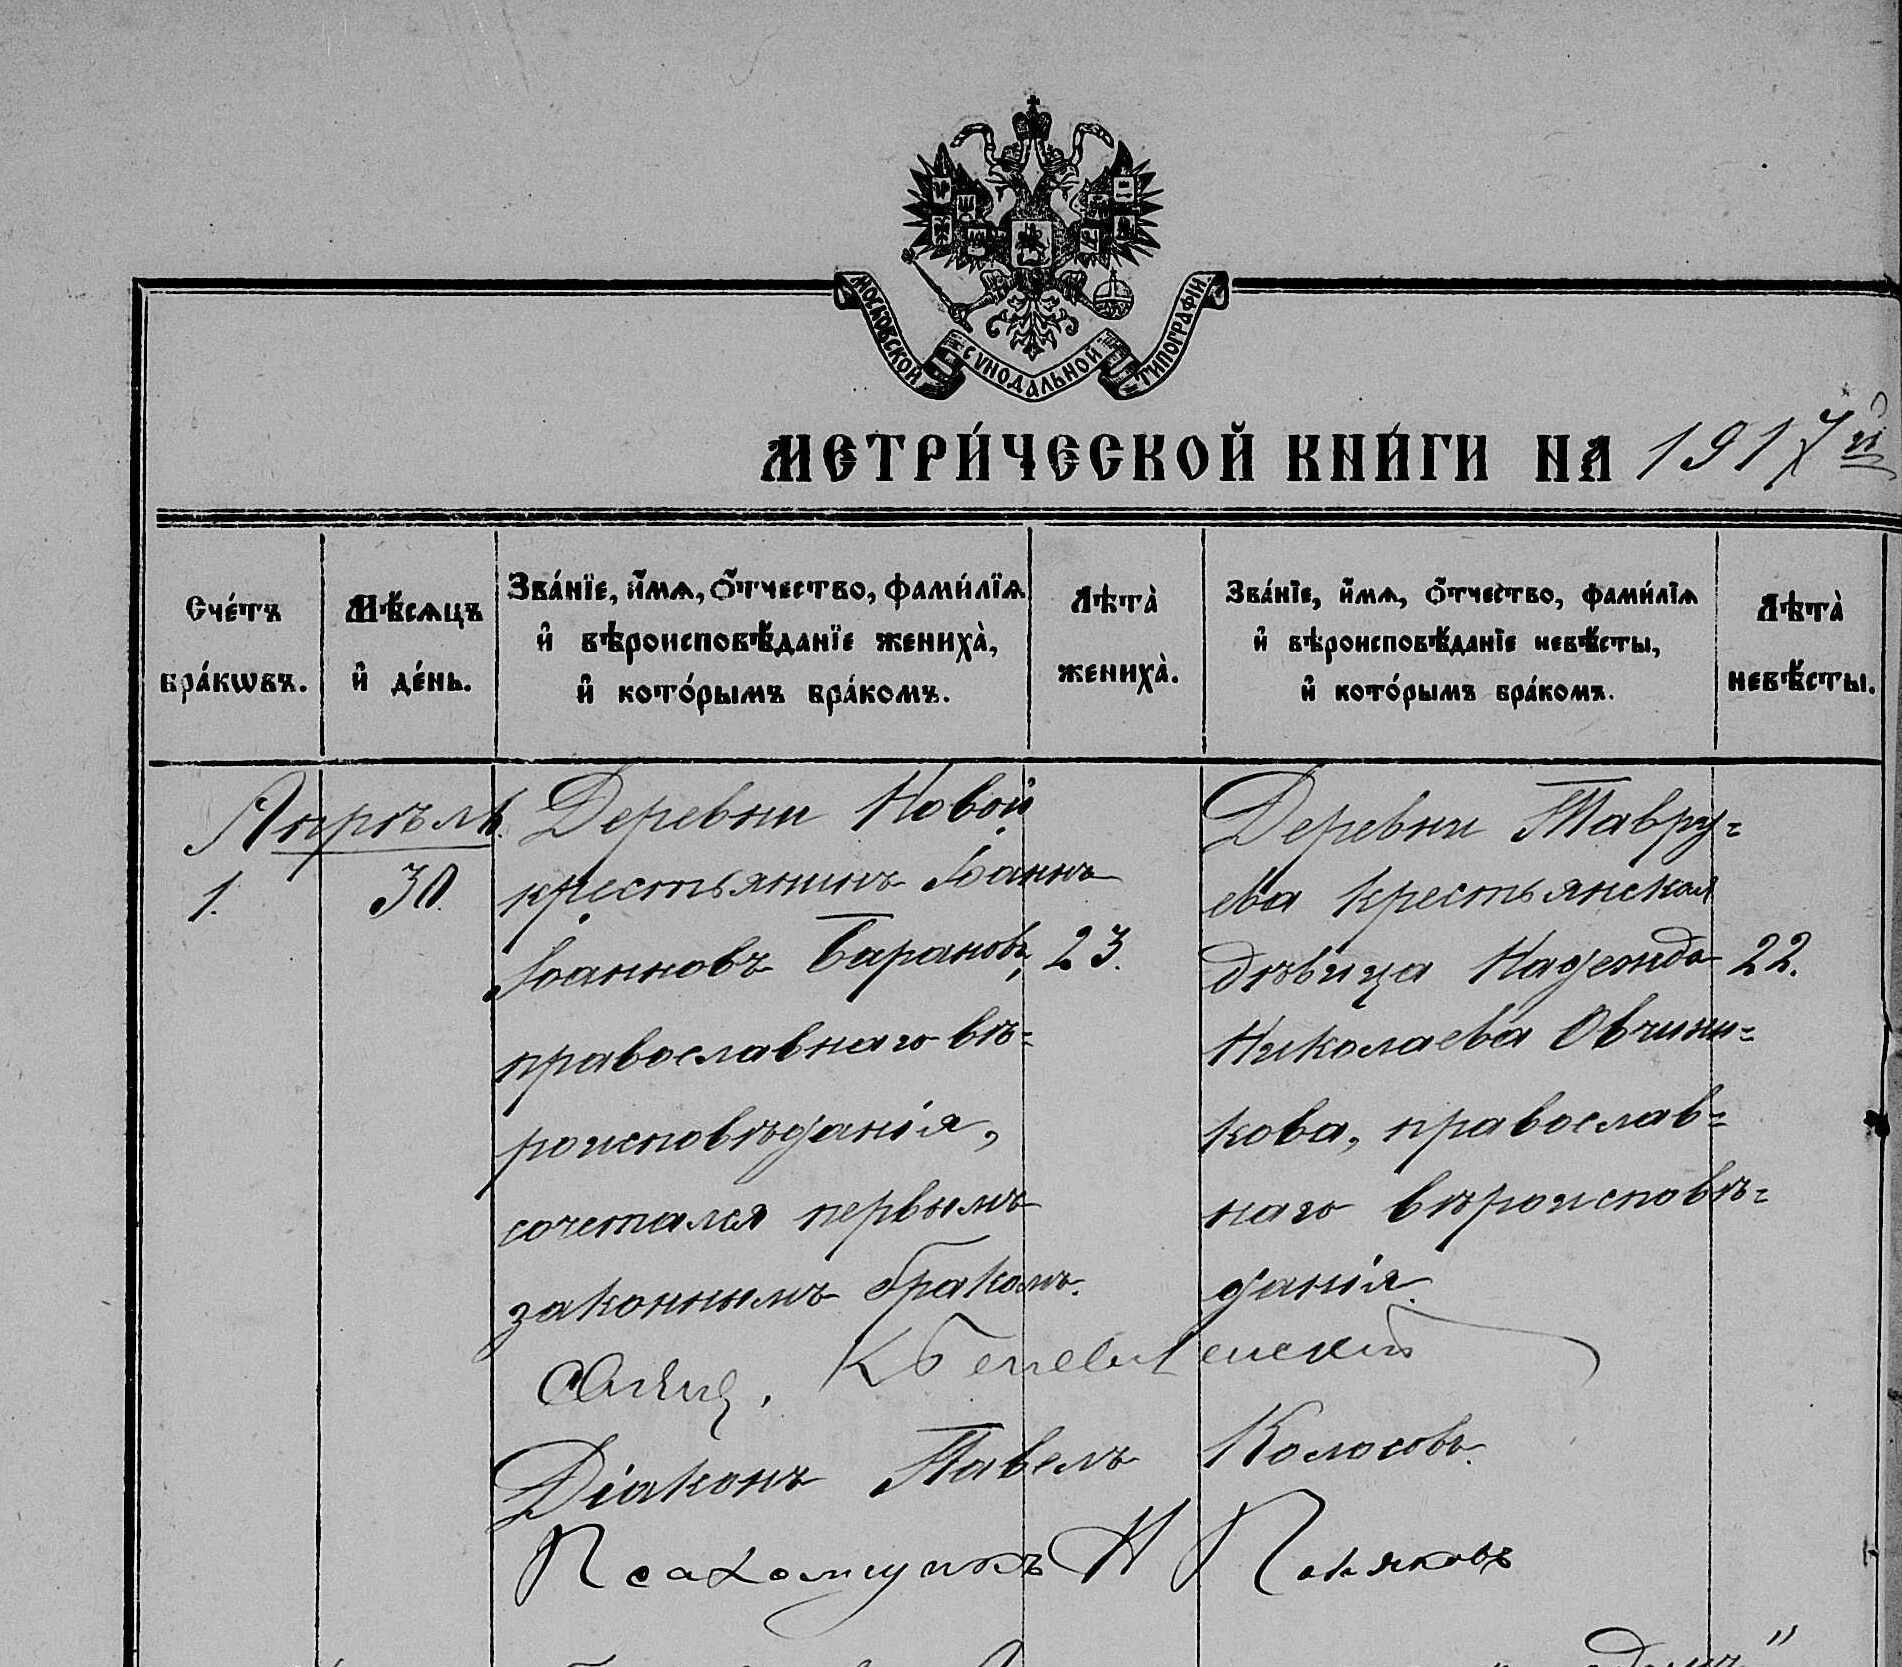 МОСКОВСКОЙ СУНОДАЛЬНОЙ ТИПОГРАФІИ
МЕТРИ́ЧЕСКОЙ КНИ́ГИ НА 1917й
Сче́тъ
бра́кѡвъ.
Мѣ́сѧцъ
и҆ де́нь.
Зва́нїе, и҆́мѧ, ѻ҆́тчество, фами́лїѧ
и҆ вѣроисповѣ́данїе жениха̀,
и҆ кото́рымъ бра́комъ.
Лѣта̀
жениха̀.
Зва́нїе, и҆́мѧ, ѻ҆́тчество, фами́лїѧ
и҆ вѣроисповѣ́данїе невѣ́сты,
и҆ кото́рымъ бра́комъ.
Лѣта̀
невѣ́сты.
Апрѣль.
1.
30.
Деревни Новой
крестьянинъ Іоаннъ
Іоанновъ Барановъ,
православнаго вѣ=
роисповѣданія,
сочетался первымъ
законнымъ бракомъ.
23.
Деревни Тавру=
ева крестьянская
дѣвица Надежда
Николаева Овчини=
кова, православ=
наго вѣроисповѣ=
данія.
22.
Діаконъ Павелъ Колосовъ.
Псаломщикъ Н Поляковъ